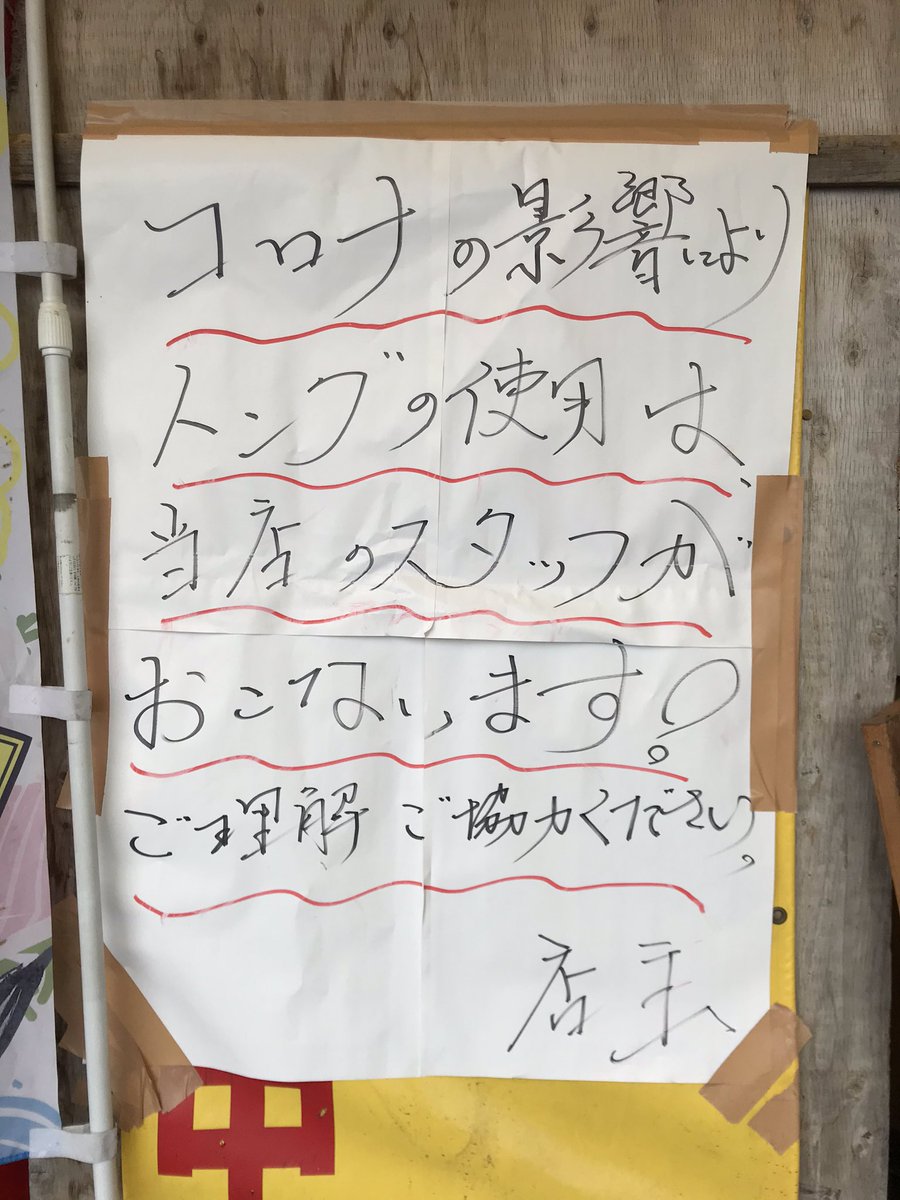 コロナの影響により
トングの使用は、
当店のスタッフが
おこないます!。
ご理解ご協力ください。
店主
中